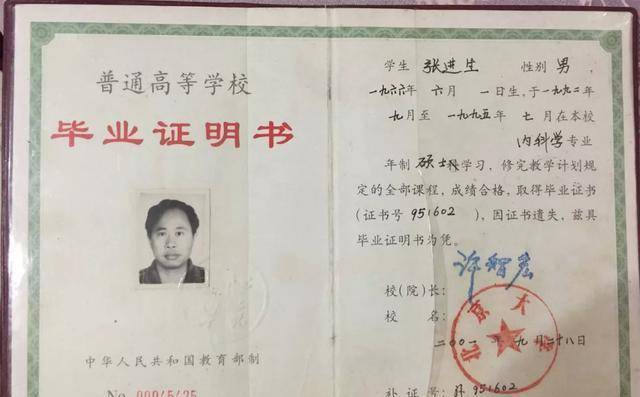 普通高等学校
毕业证明书
中华人民共和国教育部制
No.
学生 张进生 性别 男
一九六六年 六月 一日生,于一九九二年
九月至 一九九五年 七月在本校
内科学专业
年制 硕士科学习,修完教学计划规
定的全部课程,成绩合格,取得毕业证书
(证书号 951602),因证书遗失,兹具
毕业证明书为凭。
校(院)长: 许智宏
校 名:
北京大学
二00一年九月二十八日
补 证 号: 951602